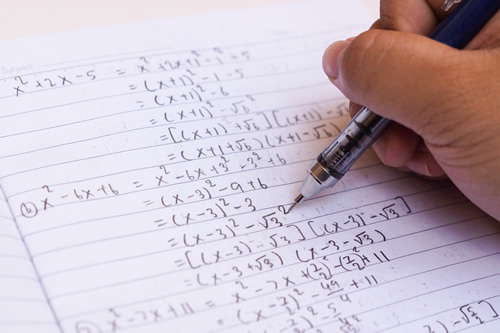 x² + 2x - 5 = x² + 2x + 1² - 1² - 5
= (x+1)² - 1 - 5
= (x+1)² - 6
= (x+1)² - √6²
= [(x+1) + √6] [(x+1) - √6]
= (x+1+√6) (x+1-√6)
b x² - 6x + 6 = x² - 6x + 3² - 3² + 6
= (x-3)² - 9 + 6
= (x-3)² - 3
= (x-3)² - √3²
= [(x-3) - √3] [(x-3) - √3]
= (x-3+√3) (x-3-√3)
x² - 7x + 11 = x² - 7x + (7/2)² - (7/2)² + 11
= (x-7/2)² - 49/4 + 11